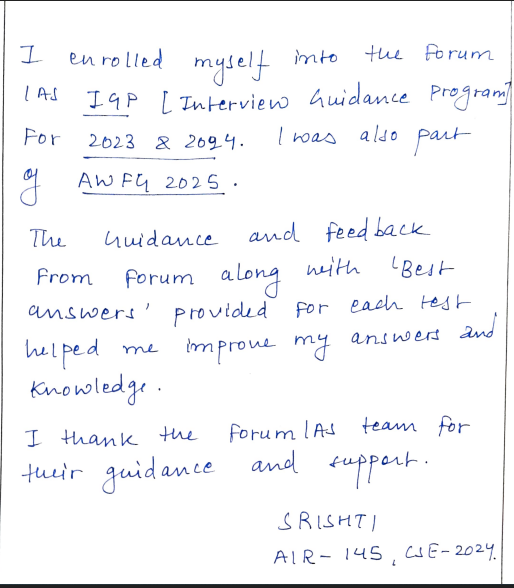 I enrolled myself into the Forum
IAS IGP [Interview Guidance Program]
For 2023 & 2024. I was also part
of AWFG 2025.
The Guidance and feedback
From Forum along with 'Best
answers' provided for each test
helped me improve my answers and
Knowledge.
I thank the ForumIAS team for
their guidance and support.
SRISHTI
AIR- 145, CSE-2024.